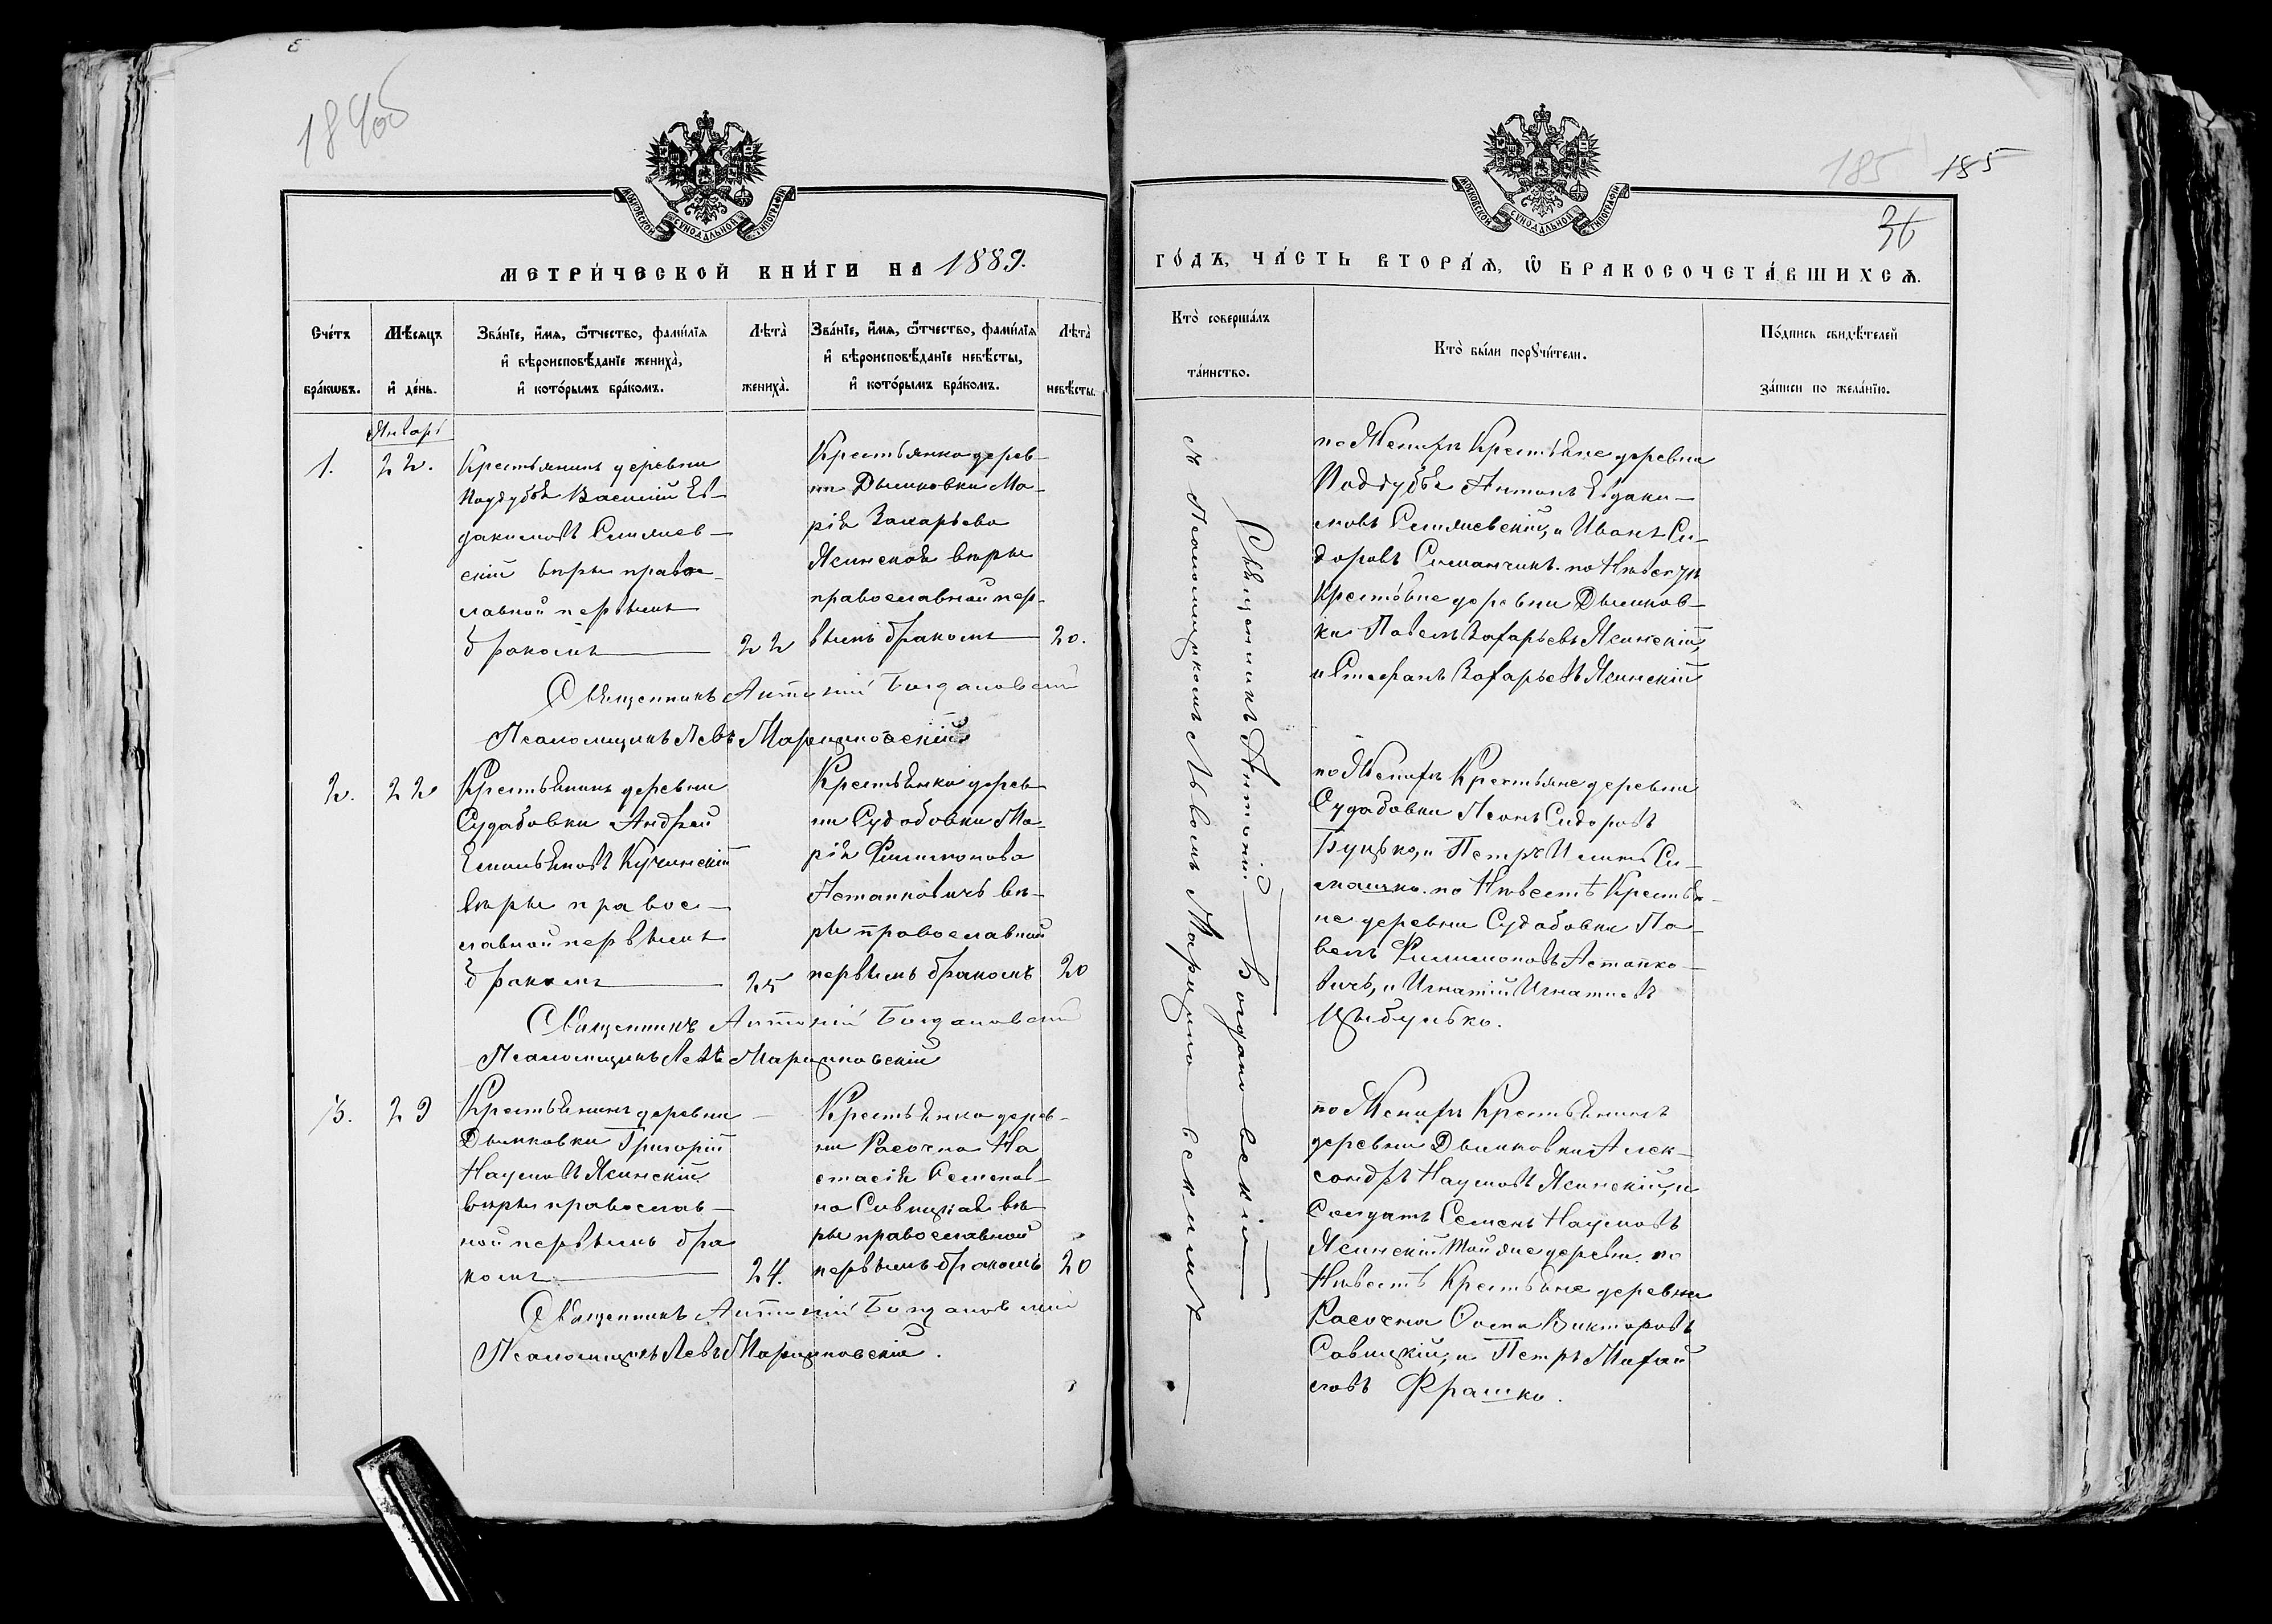 184об
МОСКОВСКОЙ СѴНОДАЛЬНОЙ ТИПОГРАФІИ
МЕТРИ́ЧЕСКОЙ КНИ́ГИ НА 1889.
Сче́тъ бра́кѡвъ.
Мѣ́сяцъ и҆ де́нь.
Зва́нїе, и҆́мѧ, ѻ҆́тчество, фами́лїѧ
и҆ вѣроисповѣ́данїе жениха̀,
и҆ кото́рымъ бра́комъ.
Лѣта̀ жениха̀.
Зва́нїе, и҆́мѧ, ѻ҆́тчество, фами́лїѧ
и҆ вѣроисповѣ́данїе невѣ́сты,
и҆ кото́рымъ бра́комъ.
Лѣта̀ невѣ́сты.
Январь
1.
22.
Крестьянинъ деревни
Поддубья Василій Ев-
дакимовъ
скій вѣры право-
славной первымъ
бракомъ
22
Крестьянка дерев-
ни Дымковки Ма-
рія Захарьева
Ясинская вѣры
православной пер-
вымъ бракомъ
20.
Священникъ Антоній Богдановскій
Псаломщикъ Левъ Марциновскій
2.
22
Крестьянинъ деревни
Судабовки Андрей
Емильяновъ Кучинскій
вѣры правос-
лавной первымъ
бракомъ
25
Крестьянка дерев-
ни Судабовки Ма-
рія Филимонова
Астапковичъ вѣ-
ры православной
первымъ бракомъ
20
Священникъ Антоній Богдановскій
Псаломщикъ Левъ Марциновскій
3.
29
Крестьянинъ деревни
Дымковки Григорій
Наумовъ Ясинскій
вѣры православ-
ной первымъ бра
комъ
24.
Крестьянка дерев-
ни Расохна На
стасія Семенов-
на Савицкая вѣ-
ры православной
первымъ бракомъ
20
Священникъ Антоній Богдановскій
Псаломщикъ Левъ Марциновскій.
185 185
36
МОСКОВСКОЙ СѴНОДАЛЬНОЙ ТИПОГРАФІИ
ГО́ДЪ, ЧА́СТЬ ВТОРА́Ѧ, Ѽ БРАКОСОЧЕТА́ВШИХСѦ.
Кто̀ соверша́лъ
та́инство.
Кто̀ бы́ли порꙋчи́тели.
По́дпись свидѣ́телей
за́писи по жела́нїю.
Священникъ Антоній Богдановскій
съ Псаломщикомъ Львомъ Марциновскимъ
по Женихѣ Крестьяне деревни
Поддубья Антонъ Евдаки-
мовъ и Иванъ Си-
доровъ по Невѣстѣ
Крестьяне деревни Дымков-
ки Павелъ Захарьевъ Ясинскій,
и Стефанъ Захарьевъ Ясинскій
по Женихѣ Крестьяне деревни
Судабовки Леонъ Сидоровъ
Буцько, и Петръ Си-
машко. по Невѣстѣ Крестья-
не деревни Судабовки Па-
велъ Филимоновъ Астапко-
вичъ, и Игнатій Игнатьевъ
Цыбулько.
по Женихѣ Крестьянинъ
деревни Дымковки Алек-
сандръ Наумовъ Ясинскій, и
Солдатъ Семенъ Наумовъ
Ясинскій той же деревни. по
Невѣстѣ Крестьяне деревни
Расохна Фома Викторовъ
Савицкій, и Петръ Михай
ловъ Фрашко.